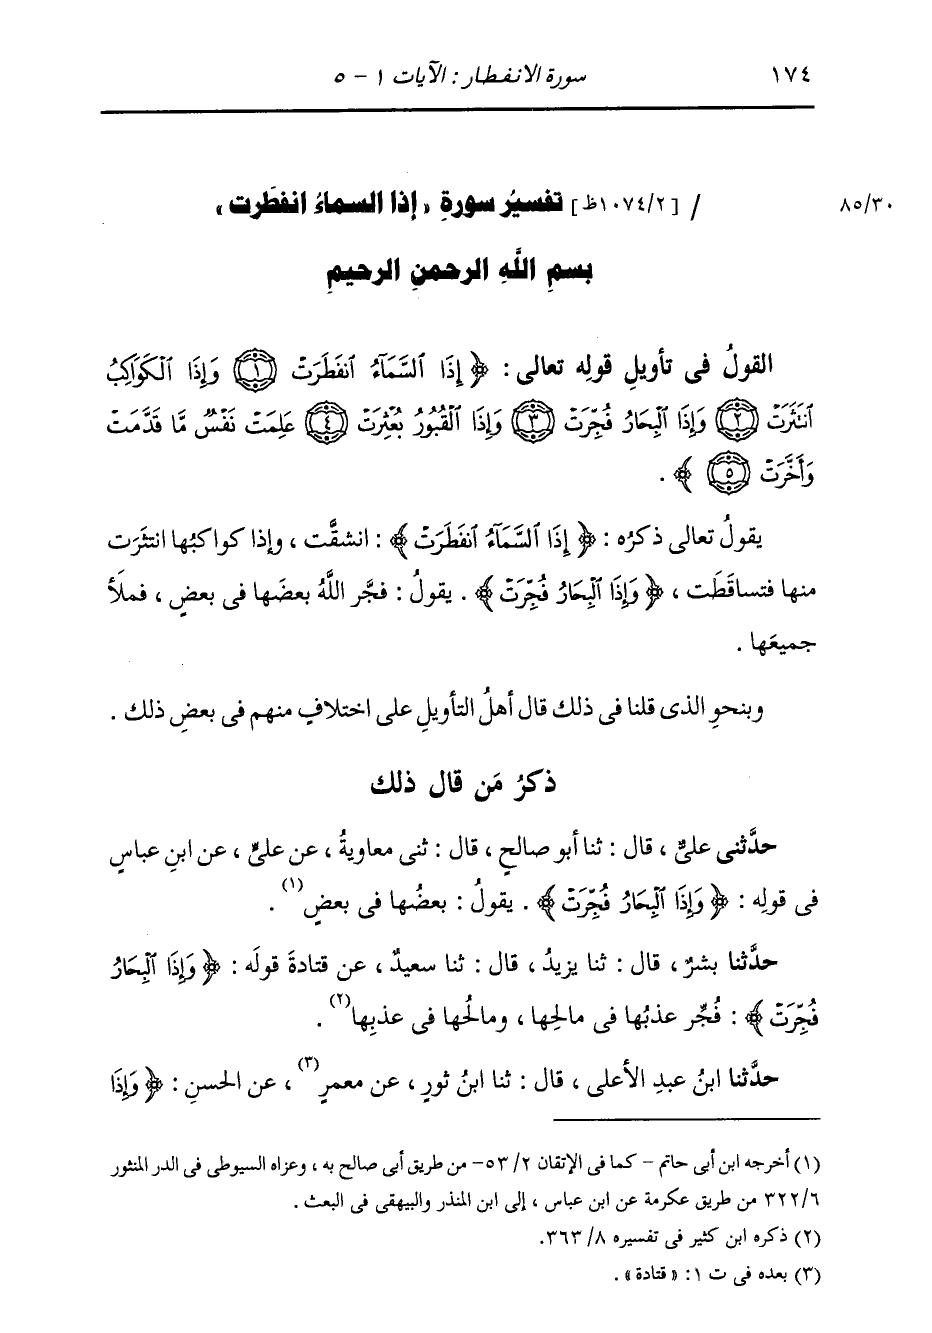 ١٧٤ سورة الانفطار : الآيات ١ - ٥
٨٥/٣٠ / [١٠٧٤/٢ظ] تفسيرُ سورةِ « إذا السماءُ انفطَرت »
بسمِ اللَّهِ الرحمنِ الرحيمِ
القولُ فى تأويلِ قولِه تعالى : ﴿ إِذَا ٱلسَّمَآءُ ٱنفَطَرَتْ ۝١ وَإِذَا ٱلْكَوَاكِبُ
ٱنتَثَرَتْ ۝٢ وَإِذَا ٱلْبِحَارُ فُجِّرَتْ ۝٣ وَإِذَا ٱلْقُبُورُ بُعْثِرَتْ ۝٤ عَلِمَتْ نَفْسٌ مَّا قَدَّمَتْ
وَأَخَّرَتْ ۝٥ ﴾ .
يقولُ تعالى ذكرُه : ﴿ إِذَا ٱلسَّمَآءُ ٱنفَطَرَتْ ﴾ : انشقَّت ، وإذا كواكبُها انتثَرت
منها فتساقَطَت ، ﴿ وَإِذَا ٱلْبِحَارُ فُجِّرَتْ ﴾ . يقولُ : فجَّر اللَّهُ بعضَها فى بعضٍ ، فملَأ
جميعَها .
وبنحوِ الذى قلنا فى ذلك قال أهلُ التأويلِ على اختلافٍ منهم فى بعضِ ذلك .
ذكرُ مَن قال ذلك
حدَّثنى علىٌّ ، قال : ثنا أبو صالحٍ ، قال : ثنى معاويةُ ، عن علىٍّ ، عن ابنِ عباسٍ
فى قولِه : ﴿ وَإِذَا ٱلْبِحَارُ فُجِّرَتْ ﴾ . يقولُ : بعضُها فى بعضٍ(١) .
حدَّثنا بشرٌ ، قال : ثنا يزيدُ ، قال : ثنا سعيدٌ ، عن قتادةَ قولَه : ﴿ وَإِذَا ٱلْبِحَارُ
فُجِّرَتْ ﴾ : فُجِّر عذبُها فى مالحِها ، ومالحُها فى عذبِها(٢) .
حدَّثنا ابنُ عبدِ الأعلى ، قال : ثنا ابنُ ثورٍ ، عن معمرٍ(٣) ، عن الحسنِ : ﴿ وَإِذَا
(١) أخرجه ابن أبى حاتم - كما فى الإتقان ٢/ ٥٣- من طريق أبى صالح به ، وعزاه السيوطى فى الدر المنثور
٣٢٢/٦ من طريق عكرمة عن ابن عباس ، إلى ابن المنذر والبيهقى فى البعث .
(٢) ذكره ابن كثير فى تفسيره ٨/ ٣٦٣.
(٣) بعده فى ت ١: « قتادة » .